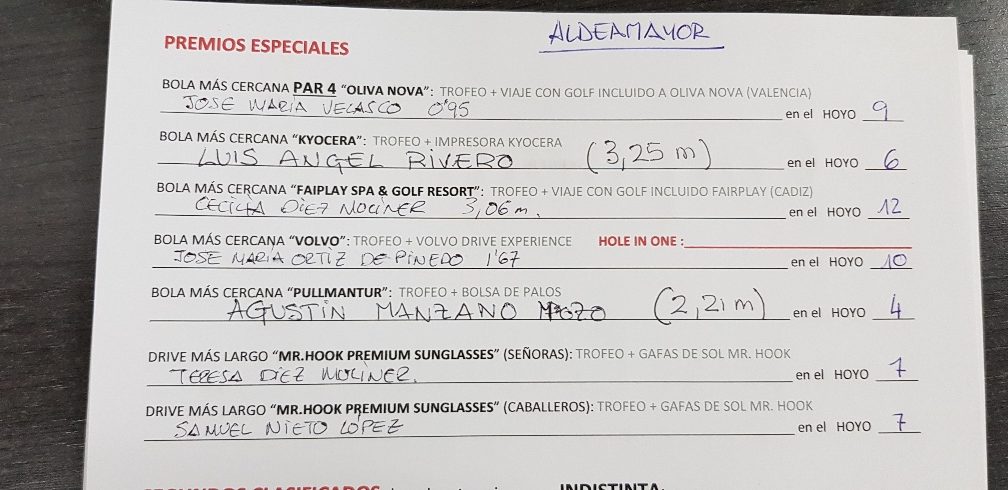 ALDEAMAYOR
PREMIOS ESPECIALES
BOLA MÁS CERCANA PAR 4 “OLIVA NOVA”: TROFEO + VIAJE CON GOLF INCLUIDO A OLIVA NOVA (VALENCIA)
JOSE MARIA VELASCO 0'95 en el HOYO 9
BOLA MÁS CERCANA “KYOCERA”: TROFEO + IMPRESORA KYOCERA
LUIS ANGEL RIVERO (3,25 m) en el HOYO 6
BOLA MÁS CERCANA “FAIPLAY SPA & GOLF RESORT”: TROFEO + VIAJE CON GOLF INCLUIDO FAIRPLAY (CADIZ)
CECILIA DIEZ MOLINER 3,06 m. en el HOYO 12
BOLA MÁS CERCANA “VOLVO”: TROFEO + VOLVO DRIVE EXPERIENCE HOLE IN ONE :
JOSE MARIA ORTIZ DE PINEDO 1'67 en el HOYO 10
BOLA MÁS CERCANA “PULLMANTUR”: TROFEO + BOLSA DE PALOS
AGUSTIN MANZANO (2,21 m) en el HOYO 4
DRIVE MÁS LARGO “MR.HOOK PREMIUM SUNGLASSES” (SEÑORAS): TROFEO + GAFAS DE SOL MR. HOOK
TERESA DIEZ MOLINER. en el HOYO 7
DRIVE MÁS LARGO “MR.HOOK PREMIUM SUNGLASSES” (CABALLEROS): TROFEO + GAFAS DE SOL MR. HOOK
SAMUEL NIETO LÓPEZ en el HOYO 7
INDISTINTA: